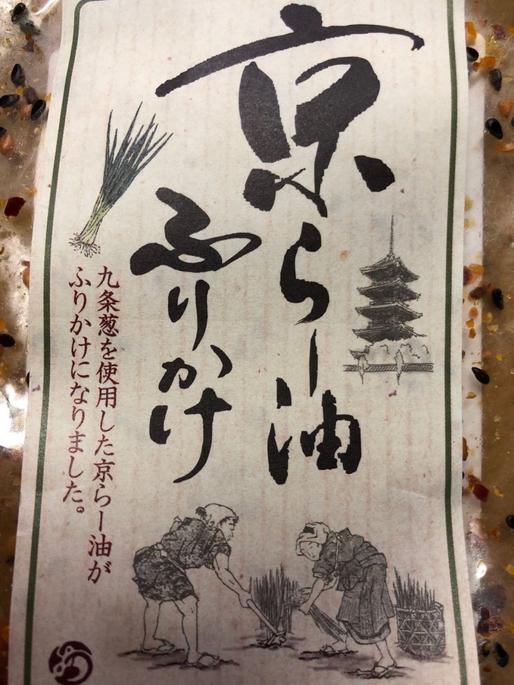 京らー油
ふりかけ
九条葱を使用した京らー油が
ふりかけになりました。